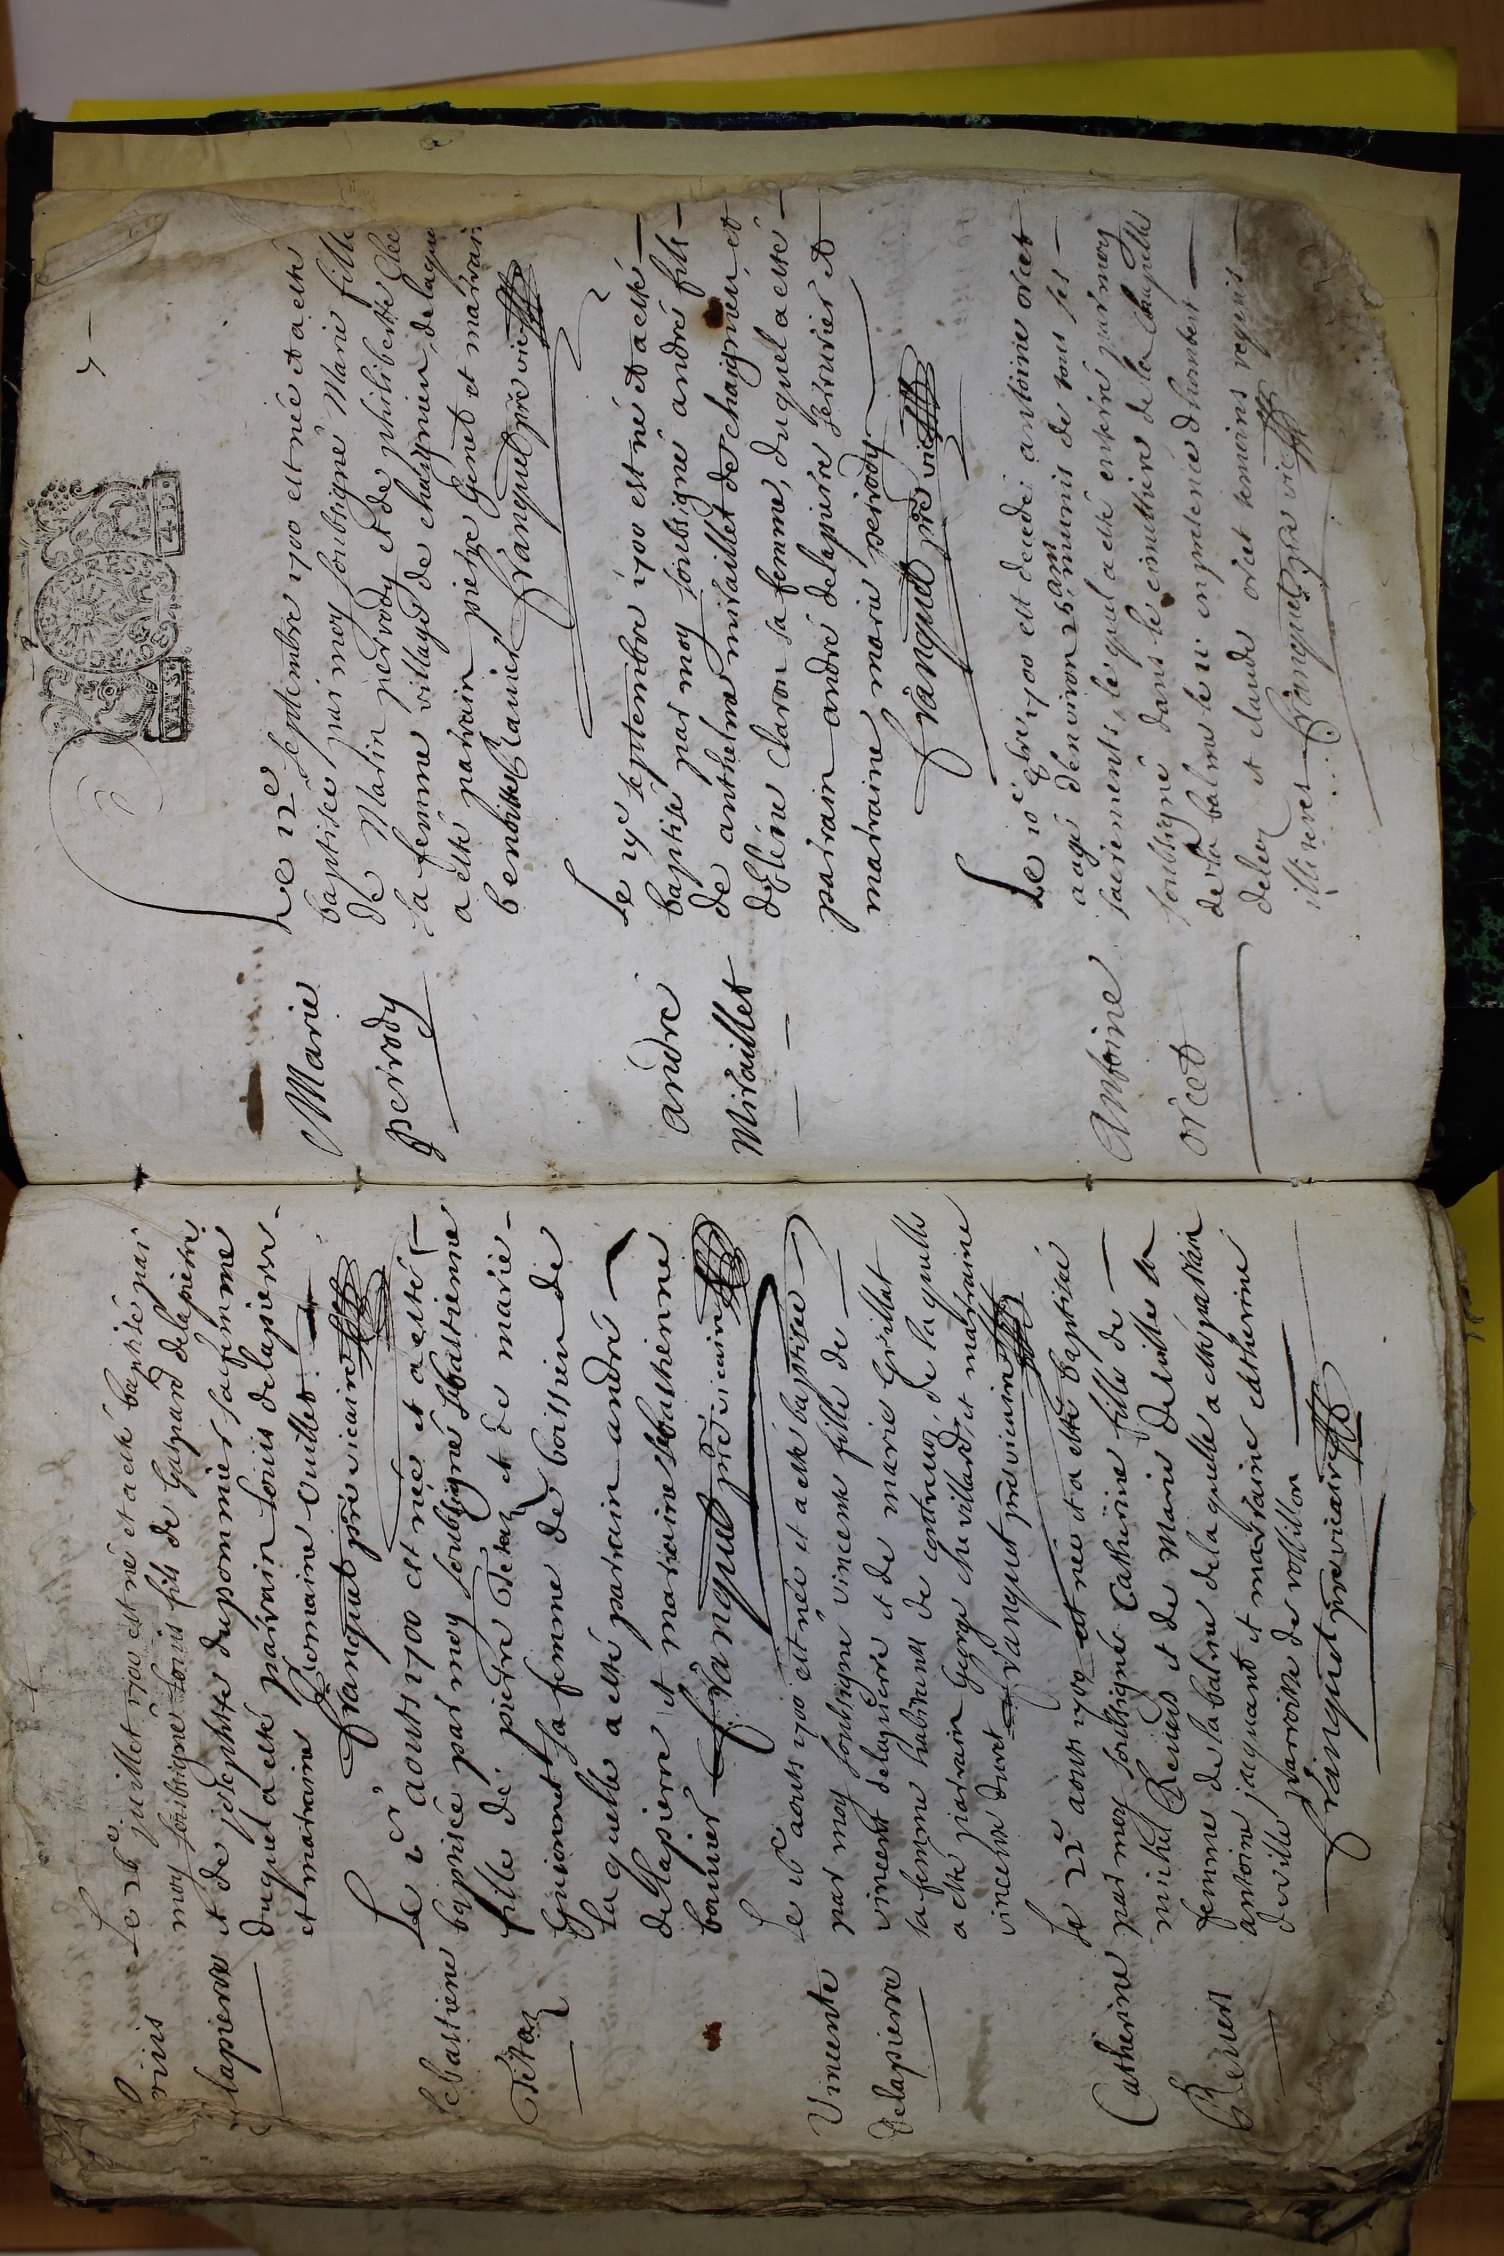 Louis
Delapierre
Le 26e juillet 1700 est né et a esté baptisé par
moy soubsigné Louis fils de Gaspard delapierre
et de josephte dupommier sa femme
duquel a esté parrain Louis delapierre
et marraine Romaine Ouillet
Franquet pre vicaire
Sebastiene
Tetaz
Le 1er aoust 1700 est née et a esté
baptisée par moy soubsigné sebastienne
fille de pierre Tetaz et de marie
Guionnet sa femme de boissieu de
laquelle a esté parrain andré
delapierre et marraine sebastienne
bonnier Franquet pre vicaire
Vincente
Delapierre
Le 16e aoust 1700 est née et a esté baptisée
par moy soubsigné vincente fille de
vincent delapierre et de marie Grillat
sa femme habitant de contrevoz de laquelle
a esté parrain George chevillard et marraine
vincente duret Franquet pre vicaire
Catherine
Reviers
Le 22e aoust 1700 est née et a esté baptisée
par moy soubsigné Catherine fille de
michel Reviers et de Marie Deville sa
femme de la balme de laquelle a esté parrain
antoine jacquand et marraine catherine
deville parroisse de rossillon
Franquet pre vicaire
7
Marie
perrody
Le 12e septembre 1700 est née et a esté
baptisée par moy soubsigné Marie fille
de Marin perrody et de philiberte
sa femme village de chaignieu, de laquelle
a esté parrain pierre Genet et marraine
benoitte Ravier Franquet pre vic
André
Miraillet
Le 17e septembre 1700 est né et a esté
baptisé par moy soubsigné andré fils
de anthelme miraillet de chaignieu et
d'Eléne Claron sa femme, duquel a esté
parrain andré delapierre serrurier et
marraine marie perrody
Franquet pre vic
Antoine
orcet
Le 10e 8bre 1700 est decedé antoine orcet
aagé denviron 25 am munis de tous ses
sacrements, lequel a esté enterré par moy
soubsigné dans le cimettiere de la Chapelle
de la balme le 11e en presence dhumbert
deleuz et claude orcet temoins requis
illiterez Franquet pre vic